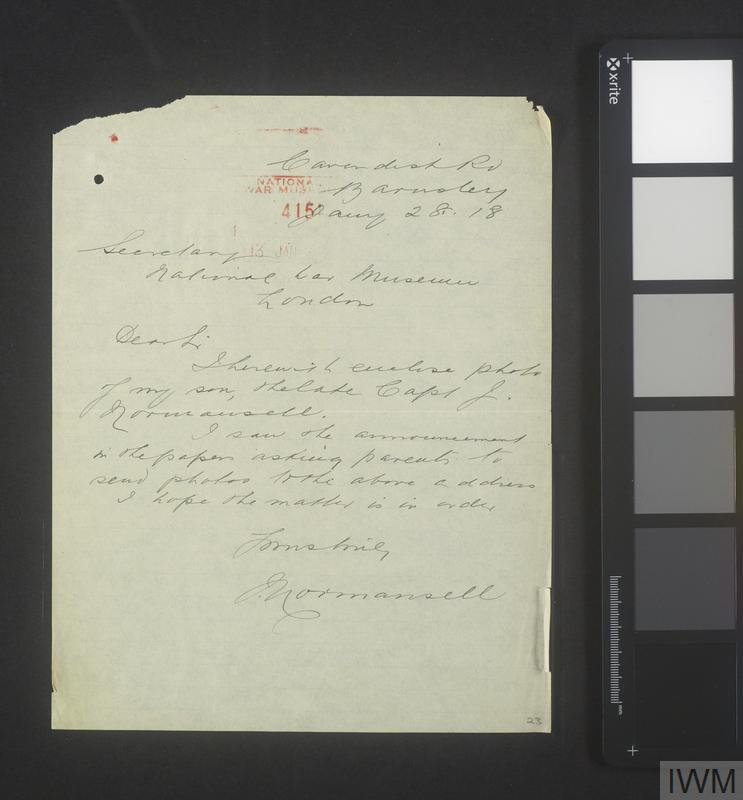 Cavendish Rd
NATIONA
WAR MUS
Barnsley
415
Jany 28. 18
13 JAN
Secretary
National War Museum
London
Dear Sir
I herewith enclose photo
of my son, the late Capt J.
Normansell.
I saw the announcement
in the papers asking parents to
send photos to the above address
I hope the matter is in order
Yours truly
J. Normansell
23
x-rite
mm
IWM